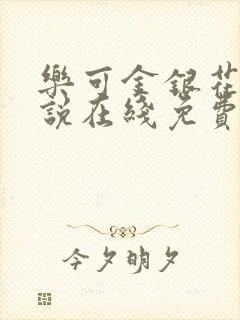 樂可金銀花
說在綫免費
今夕明夕